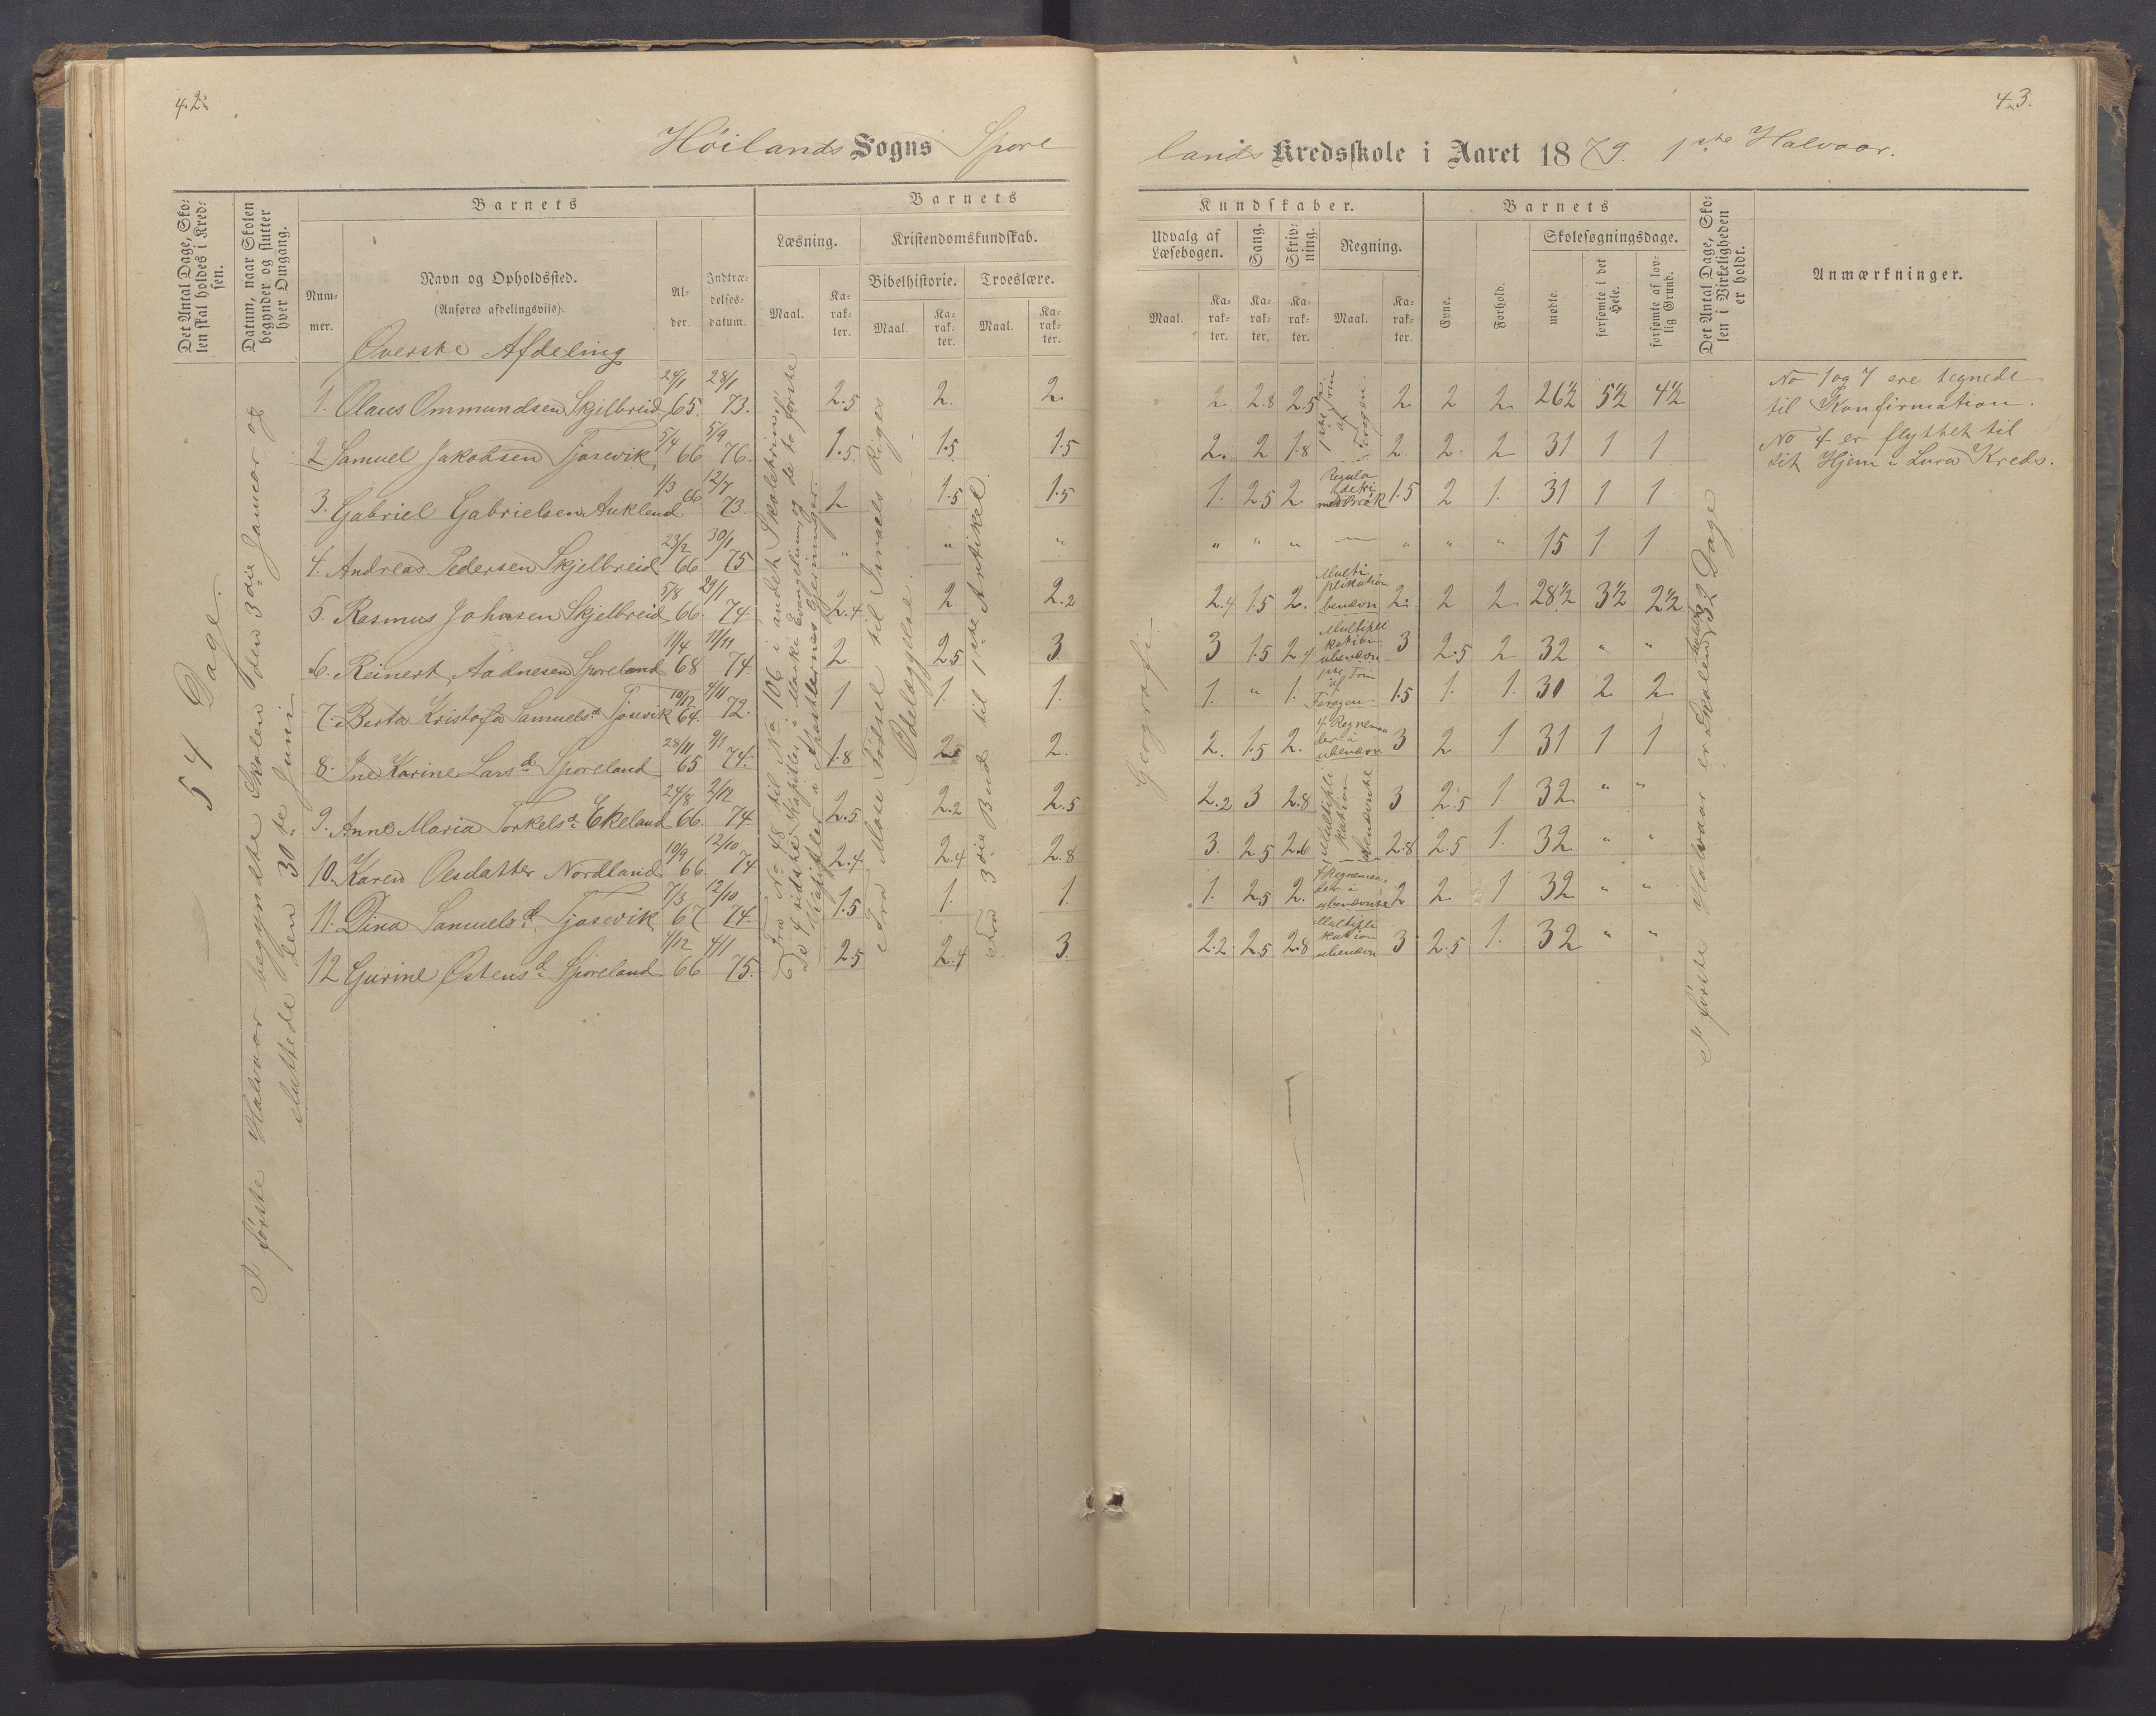 42.
43.
Höilands Sogns Spore
lands Kredsskole i Aaret 1879. 1ste Halvaar.
Det Antal Dage, Skolen skal holdes i Kredsen.
Datum, naar Skolen begynder og slutter hver Omgang.
Barnets
Nummer.
Navn og Opholdssted.
(Anføres afdelingsviis).
Alder.
Indtrædelsesdatum.
Barnets
Læsning.
Maal.
Karakter.
Kristendomskundskab.
Bibelhistorie.
Maal.
Karakter.
Troeslære.
Maal.
Karakter.
Kundskaber.
Udvalg af Læsebogen.
Maal.
Karakter.
Sang.
Karakter.
Skrivning.
Karakter.
Regning.
Maal.
Karakter.
Barnets
Evne.
Forhold.
Skolesøgningsdage.
mødte.
forsømte i det Hele.
forsømte af lovlig Grund.
Det Antal Dage, Skolen i Virkeligheden er holdt.
Anmærkninger.
54 Dage.
I første Halvaar begyndte Skolen den 3die Januar og
sluttede den 30te Juni
Øverste Afdeling
Fra No 48 til No 106 i andet Skoletrin,
De 4 sidste Kapitler i Marki Evangelium og de to første
Kapitler i Apostlernes Gjerninger.
Fra Mose Fødsel til Israels Riges
Ødelæggelse.
Fra 3die Bud til 1ste Artikel.
Geografi.
1. Olaus Ommundsen Skjelbreid 24/1 65. 28/1 73. 2.5 2. 2. 2. 2.8 2.5 1ste Trin af Forogen. 2. 2 2 26½ 5½ 4½
2 Samuel Jakobsen Tjosevik 5/4 66 5/9 76. 1.5. 1.5 1.5 2. 2 1.8 2. 2. 2 31 1 1
3. Gabriel Gabrielsen Aukland 1/3 66. 12/7 73. 2 1.5 1.5 1. 2.5 2. Regula detri med Brøk 1.5 2 1. 31 1 1
4. Andreas Pedersen Skjelbreid 23/2 66 30/1 75 " " " " " " — " " " 15 1 1
5. Rasmus Johnsen Skjelbreid 5/8 66. 29/1 74. 2.4 2. 2.2 2.4 1.5 2. Multiplikation benævn 2. 2 2 28½ 3½ 2½
6. Reinert Aadnesen Sporeland 11/4 68 11/11 74. 2. 2.5 3. 3 1.5 2.4 Multiplikation ubenævn 3 2.5 2 32 " "
7. Berta Kristofa Samuelsd. Tjosevik 10/12 64. 4/11 72. 1 1. 1. 1. " 1. 1ste Trin af Forogen 1.5 1. 1. 30 2 2
8. Ine Karine Larsd. Sporeland 28/11 65 9/1 74. 1.8 2. 2. 2. 1.5 2. 4 Regnemaader i ubenævn 3 2 1 31 1 1
9. Anne Maria Torkelsd. Ekeland 24/8 66. 2/12 74. 2.5 2.2 2.5 2.2 3 2.8 Multiplikation ubenævnte 3 2.5 1. 32 " "
10. Karen Olsdatter Nordland 10/9 66. 12/10 74 2.4 2.4 2.8 3. 2.5 2.6 2.8 2.5 1. 32 " "
11. Dina Samuelsd. Tjosevik 7/3 67 12/10 74. 1.5 1. 1. 1. 2.5 2. 4 Regnemaader i ubenævnte 2 2 1 32 " "
12 Gurine Østensd. Sporeland 4/12 66 4/1 75. 2.5 2.4 3. 2.2 2.5 2.8 Multiplikation ubenævn 3 2.5 1. 32 " "
I første Halvaar er Skolen holdt 32 Dage
No 1 og 7 ere tegnede
til Konfirmation.
No 4 er flyttet til
sit Hjem i Lura Kreds.